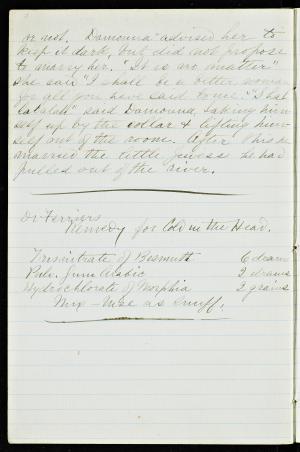 or not. Damouna advised her to
keep it dark, but did not propose
to marry her. "It is no matter"
she said "I shall be a better woman
for all you have said to me." "That
 said Damouna, taking him-
self up by the collar & lifting him-
self out of the room. After this he
married the little  he had
pulled out of the river.
Dr Ferriers
Remedy for Cold in the Head.
Trisnitrate of Bismuth 6 drams
Pulv. Gum Arabic 2 drams
Hydrochlorate of Morphia 2 grains
Mix - Use as Snuff.